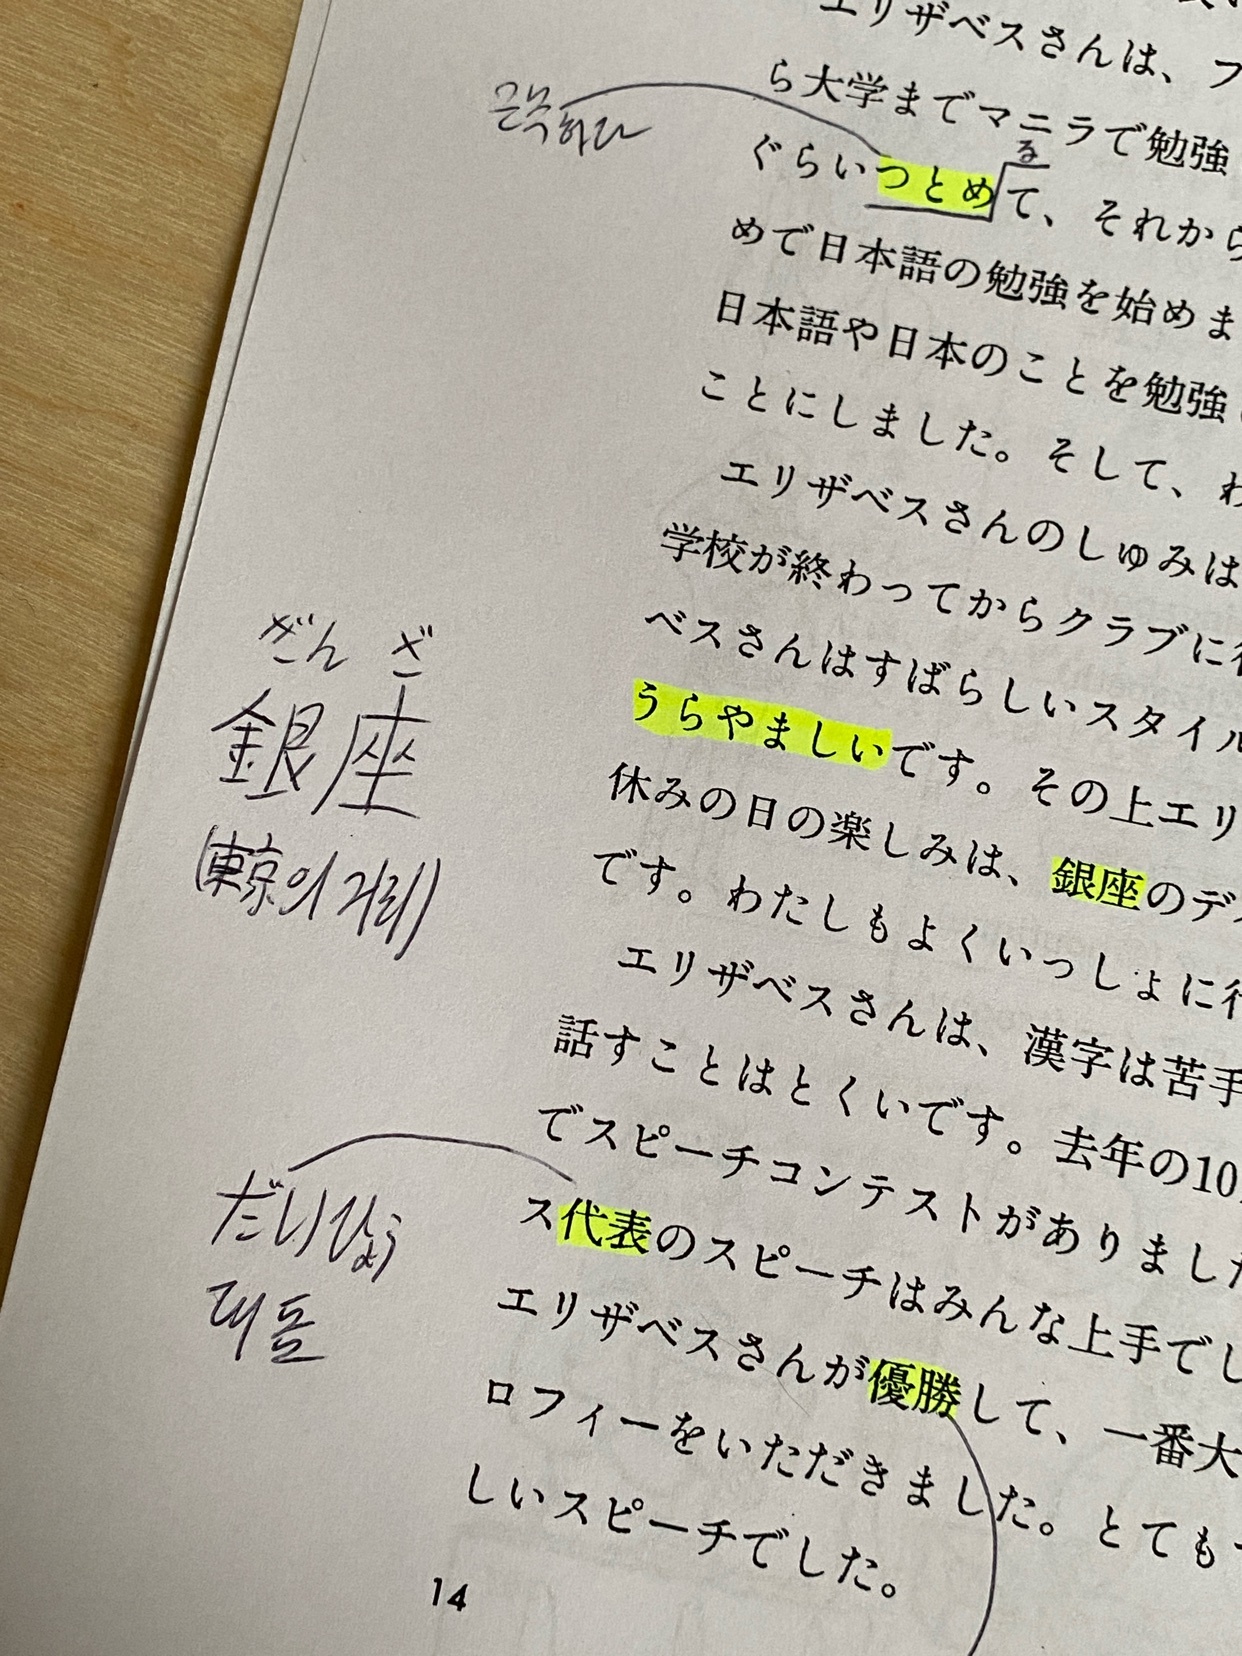 エリザベスさんは、フ
ら大学までマニラで勉強
근무하다
る
ぐらいつとめて、それから
めで日本語の勉強を始めま
日本語や日本のことを勉強
ことにしました。そして、わ
エリザベスさんのしゅみは
学校が終わってからクラブに行
ベスさんはすばらしいスタイル
うらやましいです。その上エリ
ぎん ざ
銀座
(東京의 거리)
休みの日の楽しみは、銀座のデ
です。わたしもよくいっしょに行
エリザベスさんは、漢字は苦手
話すことはとくいです。去年の10
でスピーチコンテストがありました
だいひょう
대표
ス代表のスピーチはみんな上手でし
エリザベスさんが優勝して、一番大
ロフィーをいただきました。とても
しいスピーチでした。
14